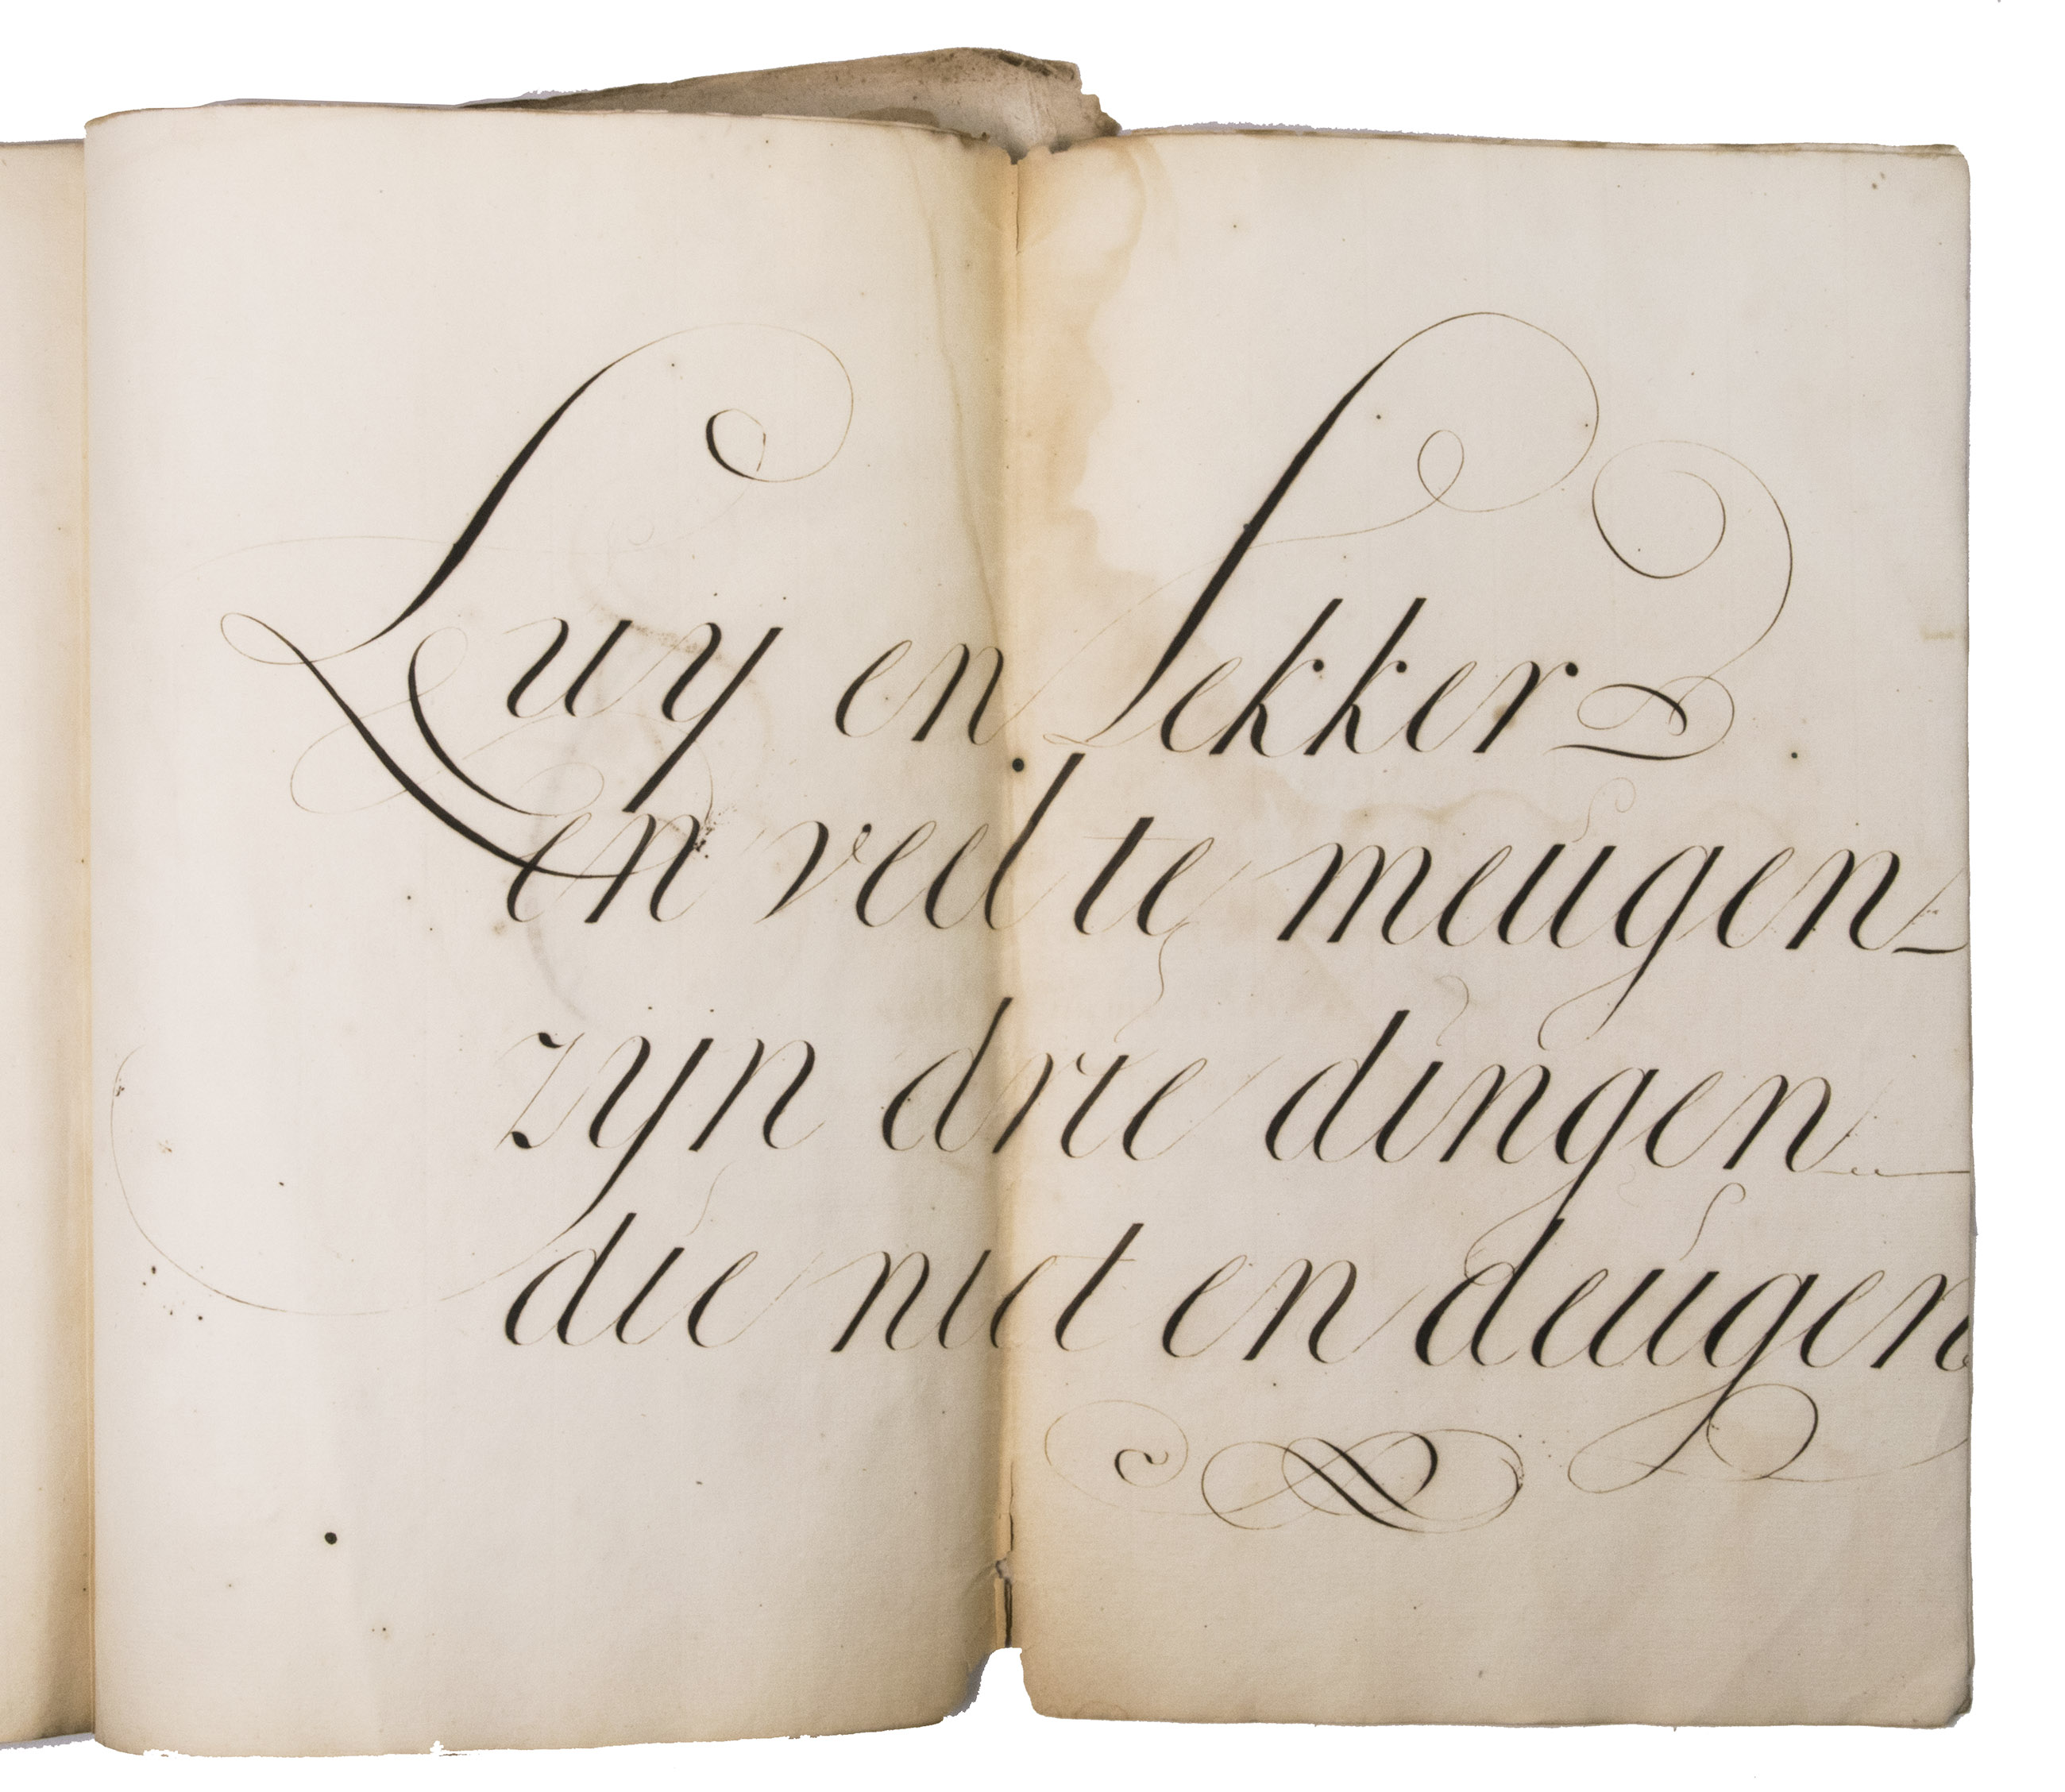 Luy en Lekker
en veel te meugen
zyn drie dingen
die niet en deugen